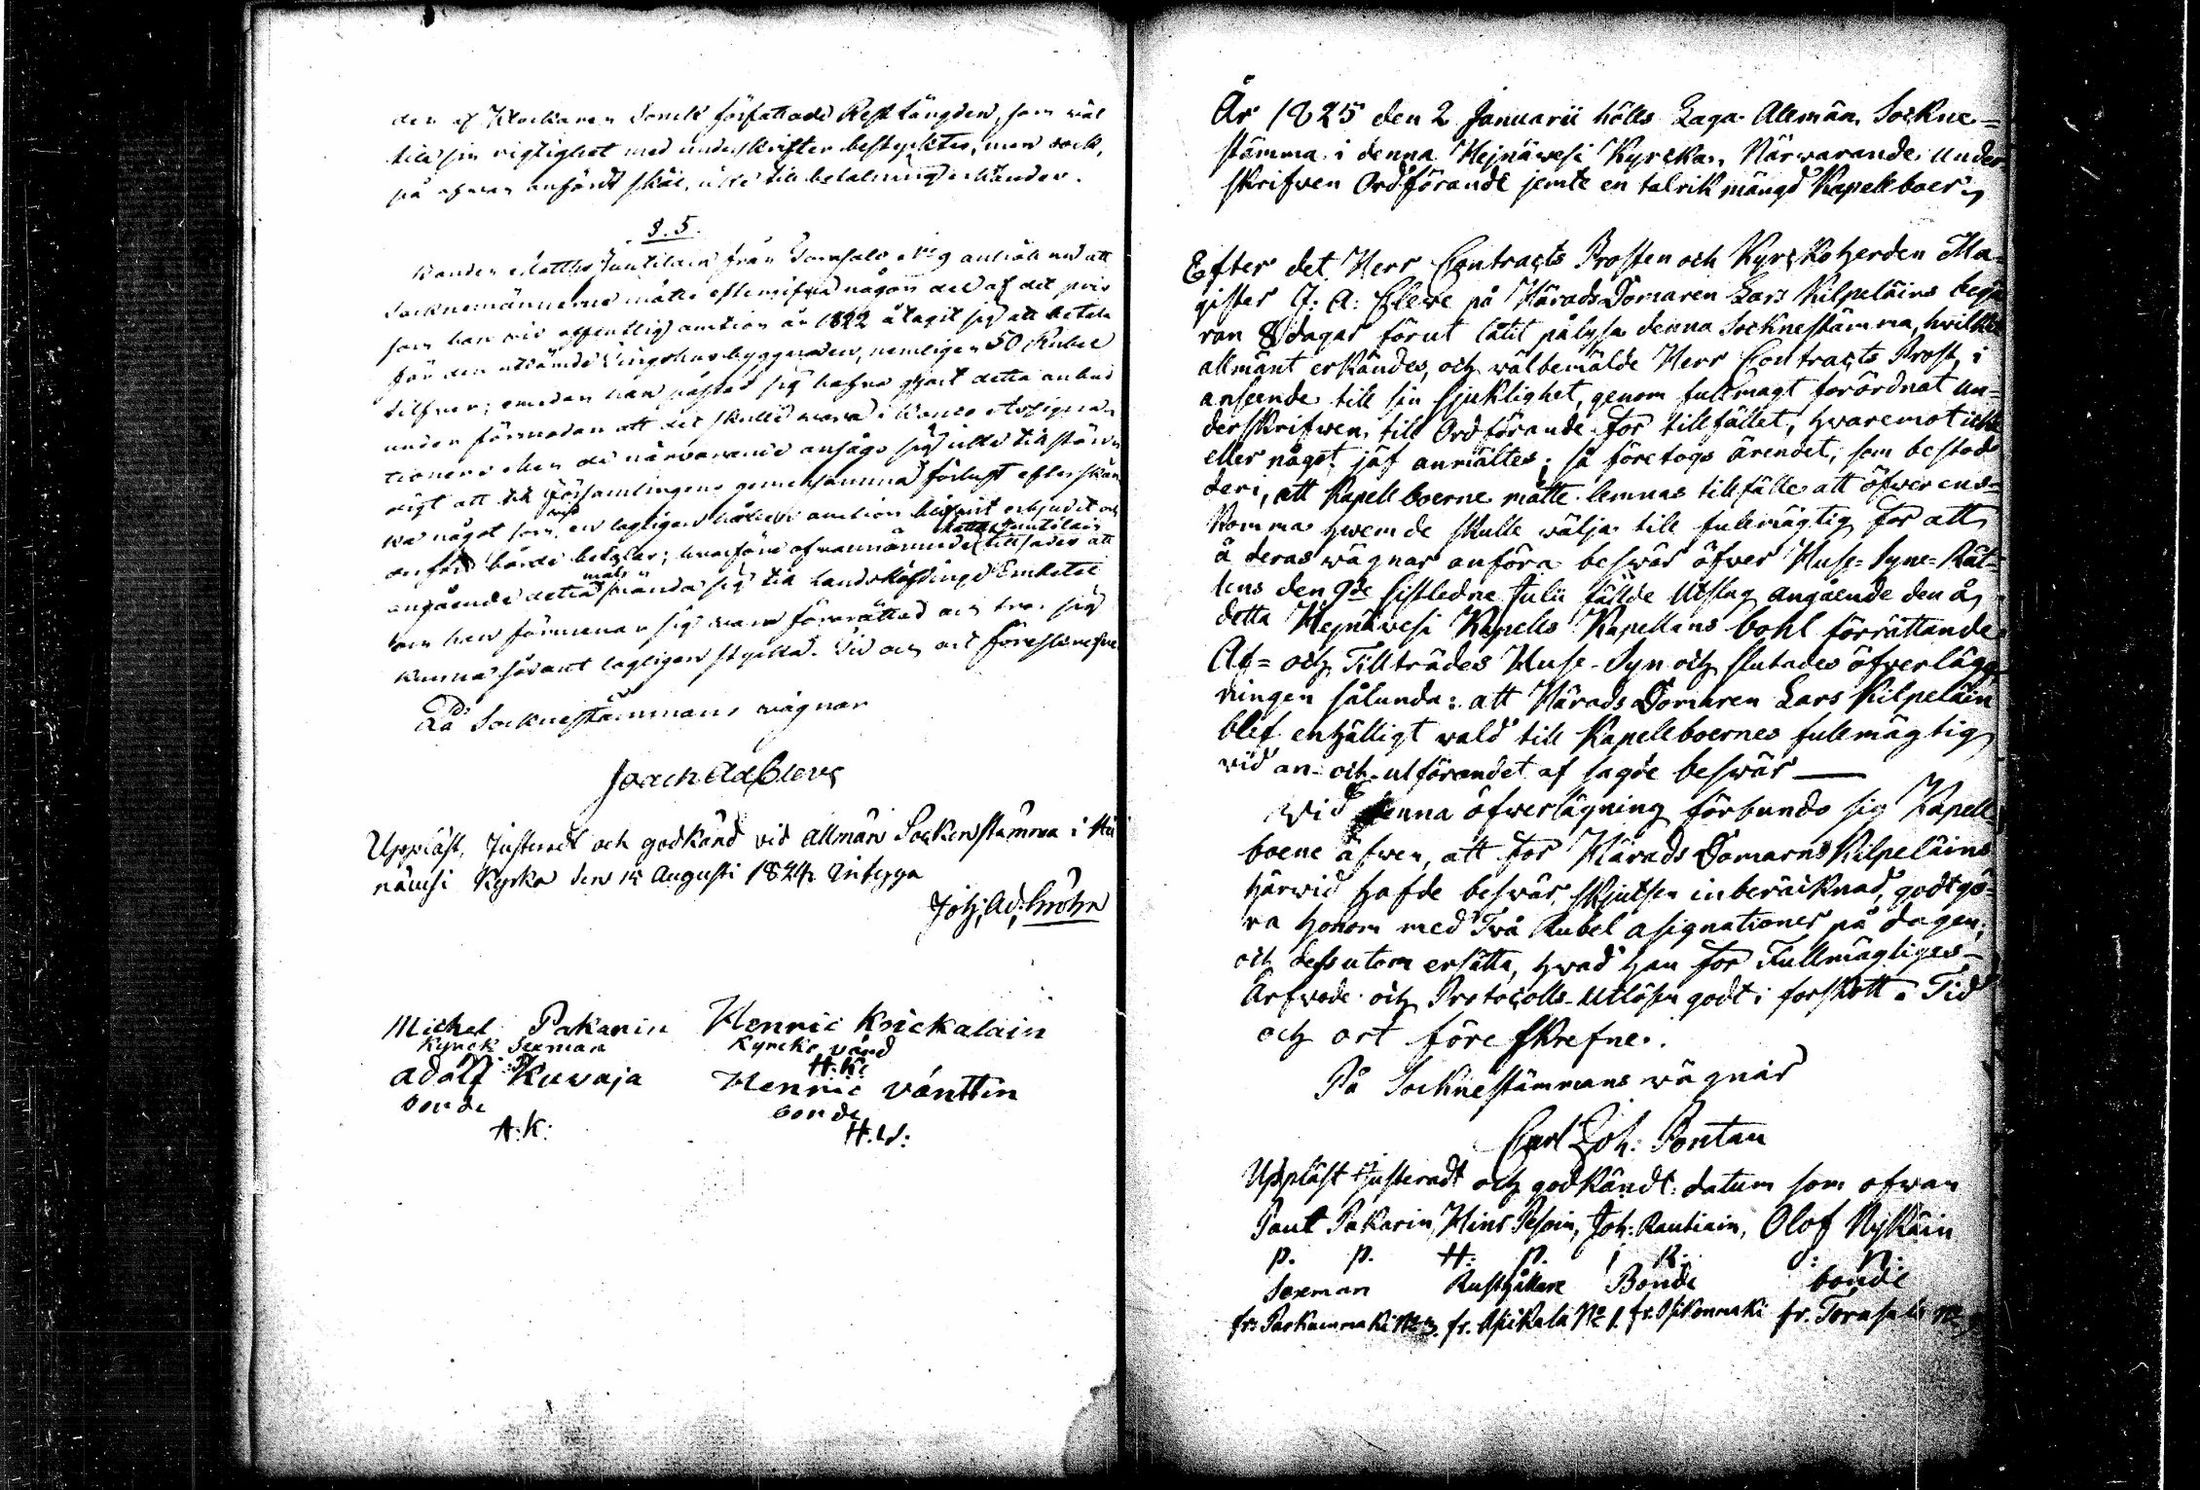 den af Klockaren Forsell författade Rest längden, som väl
till sin rigtighet med underskrifter bestyrktes, men dock,
på ofvan anförde skäl, icke till betalning erkändes.
§. 5.
Bonden Matths Jäntilain från Tornsalo No 9 anhöll om att
Socknemännerne måtte eftergifva någon del af det pris
som han vid offentlig auction år 1822 åtagit sig att betala
för den utdömde Tingshus byggnaden, nemligen 50 Rubel
silfver; emedan han påstod sig hafva gjort detta anbud
under förmodan att det skulle vara i Banco Assigna-
tioner; men de närvarande ansågo sig icke tillstän-
digt att till Församlingens gemensamma förlust efterskän-
ka något som vid en lagligen hållen auction blifvit erbjudit och
derföre borde betalas; hvarföre ofvannämnde Matths Jäntilain tillsades att
angående detta mål vända sig till Landshöfdinge Embetet
om han förmenar sig vara förorättad och tror sig
kunna sådant lagligen styrka. Tid och ort föreskrefne
På Socknestämmans vägnar
Joach. Ad. Cleve
Uppläst, Justeradt och godkänd vid allmän Sockenstämma i Hei-
nävesi Kyrka den 15 Augusti 1824 intyga
Joh: Ad: Krohn
Michel Pakarin Henric Krickalain
Kyrck Sexman Kyrcko värd
H.K:
Adolf Kuvaja Henric Vänttin
bonde bonde
A:K: H.W:
År 1825 den 2 Januarii hölls Laga Allmän Sockne=
stämma i denna Hejnäwesi Kyrcka, Närwarande, under
skrifwen Ordförande jemte en talrik mängd Kapellboer,
Efter det Herr Contracts Prosten och Kyrckoherden Ma=
gister J: A: Cleve på Härads Domaren Lars Kilpeläins begä
ran 8 dagar förut låtit pålysa denna Socknestämma, hvilket
allmänt erkändes, och wälbemälde Herr Contracts Prost, i
anseende till sin sjuklighet, genom fullmagt förordnat un=
derskrifwen till Ordförande för tillfället, hwaremot icke
eller något jäf anmältes; så företogs ärendet, som bestod
deri, att Kapellboerne måtte lemnas tillfälle att öfwer ens=
komma hwem de skulle wälja till fullmägtig för att
å deras wägnar anföra beswär öfwer Huse=Syne=Rät=
tens den 9de sistledne Julii fällde Utslag angående den å
detta Hejnäwesi Kapells Kapellans bohl förrättande
Af= och Tillträdes Huse-Syn och slutades öfverlägg
ningen sålunda: att Härads Domaren Lars Kilpeläin
blef enhälligt wald till Kapellboernes fullmägtig
vid an- och utförandet af sagde beswär —
Wid denna öfwerlägning förbundo sig Kapell
boene äfwen, att för Härads Domarns Kilpeläins
härwid hafde beswär, skjutsen inberäcknad, godtgö=
ra honom med Två Rubel asignationer på dagen,
och dessutom ersätta, hwad han för Fullmägtiges-
Arfwode och Protocolls-Utlösen godt i forskott. Tid
och ort föreskrefne.
På Socknestämmans wägnar
Carl Joh: Pontan
Uppläst Justeradt och godkändt, datum som ofwan
Paul Pakarin, Hinr Pesoin, Joh: Rautiain, Olof Nykäin
P. P. H: P. I R: O: N:
Sexman Rusthållare Bonde bonde
fr: Parkuamaki No 3. fr. Apikala No 1. fr. fr. Tornsalo No